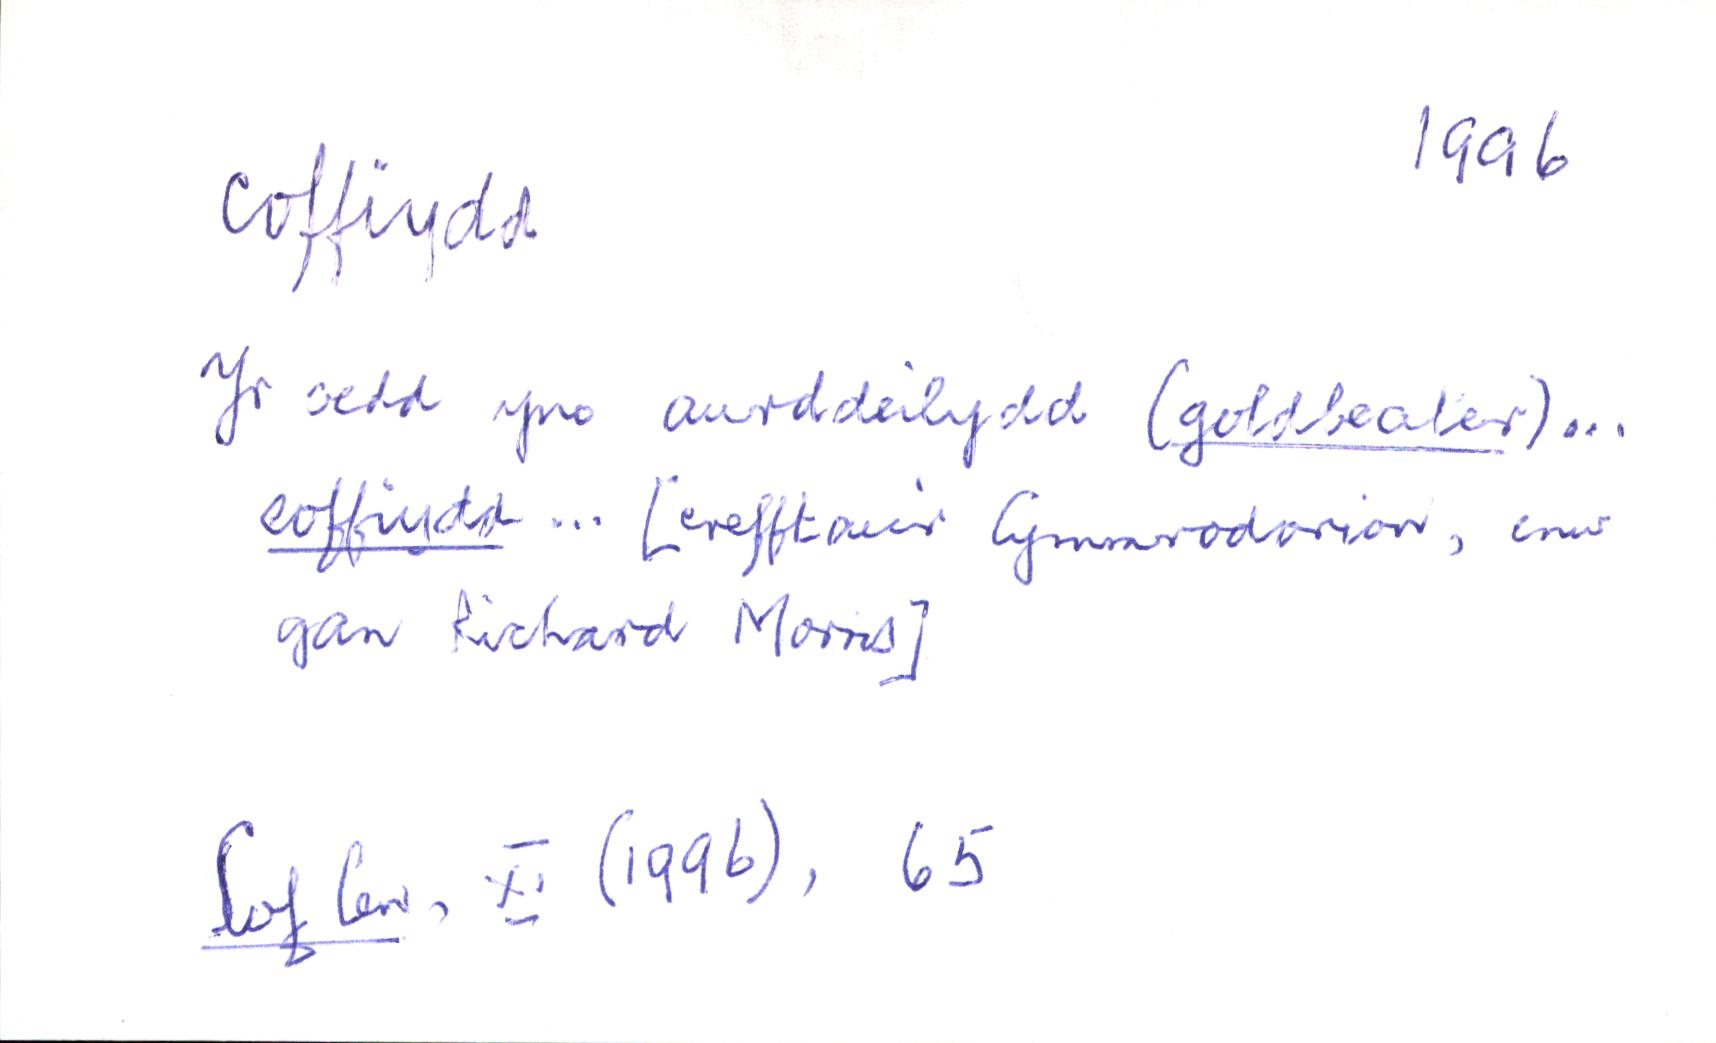 1996
coffiydd
Yr oedd yno aurddeilydd (goldbeater)...
coffiydd ... [crefftwir Cymmrodorion, enw
gan Richard Morris]
Cof Cen, XI (1996), 65